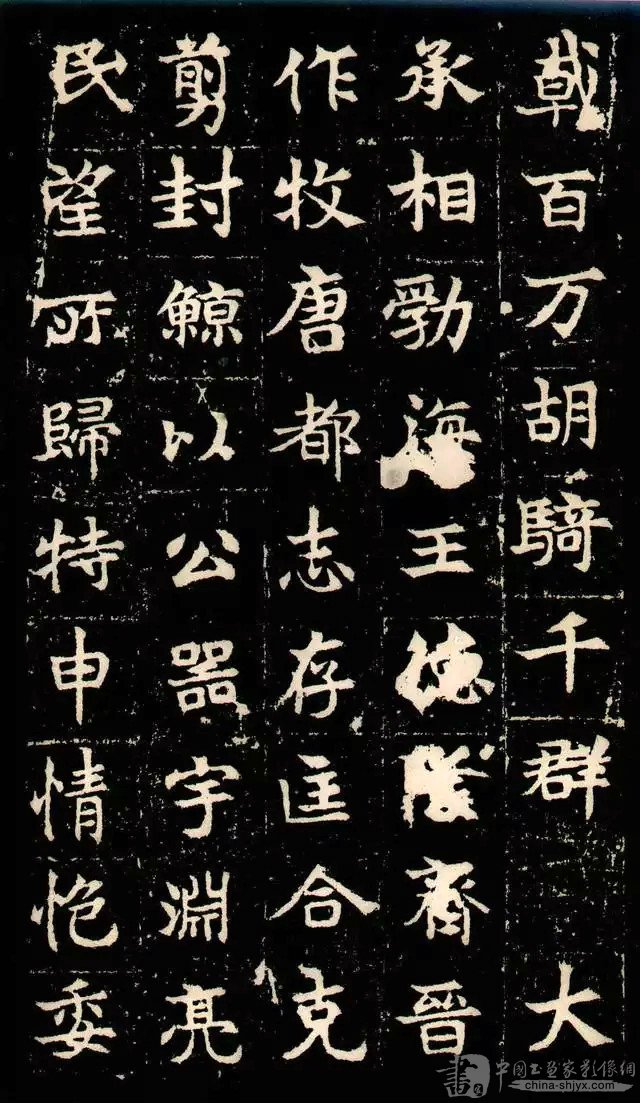 戟百万胡騎千群 大
承相勃海王德隆齊晉
作牧唐都志存匡合克
剪封鯨以公器宇淵亮
民望所歸特申情怉委
書 中國书画家影像網
china-shjyx.com